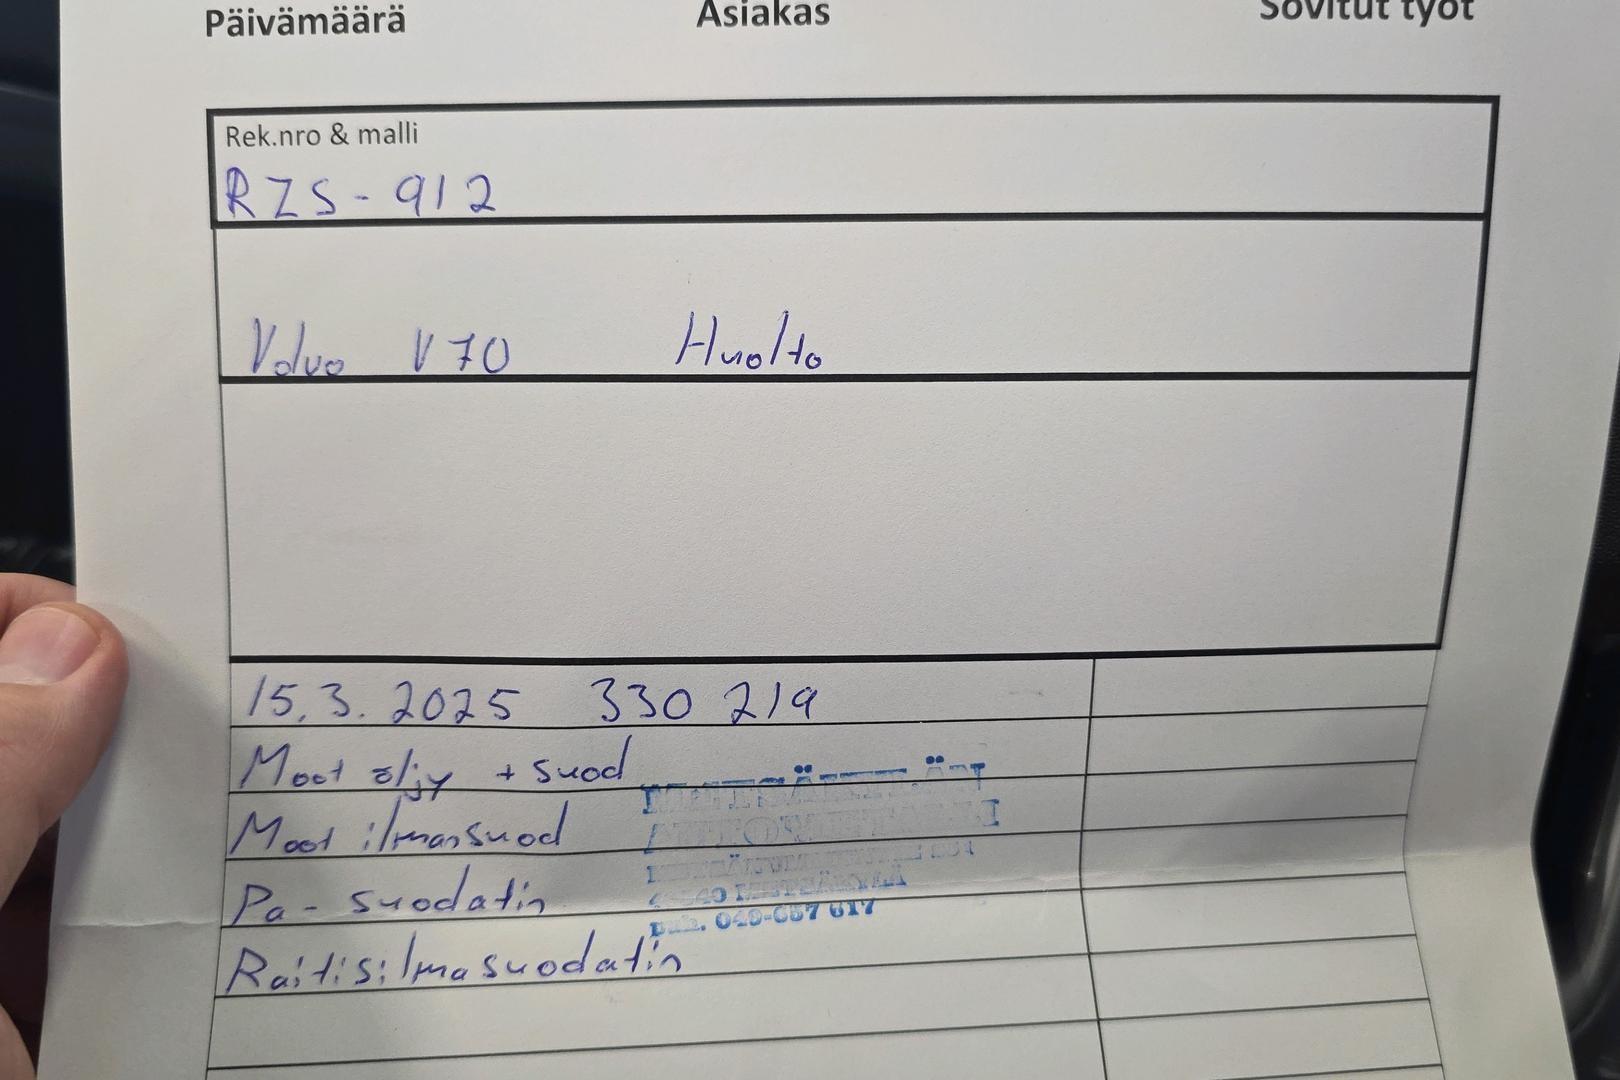 Päivämäärä Asiakas Sovitut työt
Rek.nro & malli
RZS-912
Volvo V70 Huolto
15.3.2025 330 219
Moot öljy + suod
Moot ilmansuod
Pa-suodatin
Raitisilmasuodatin
puh.